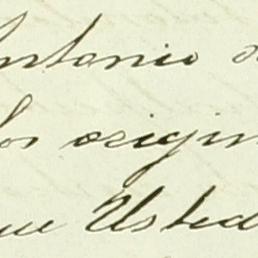 Antonio
los origin
que Usted